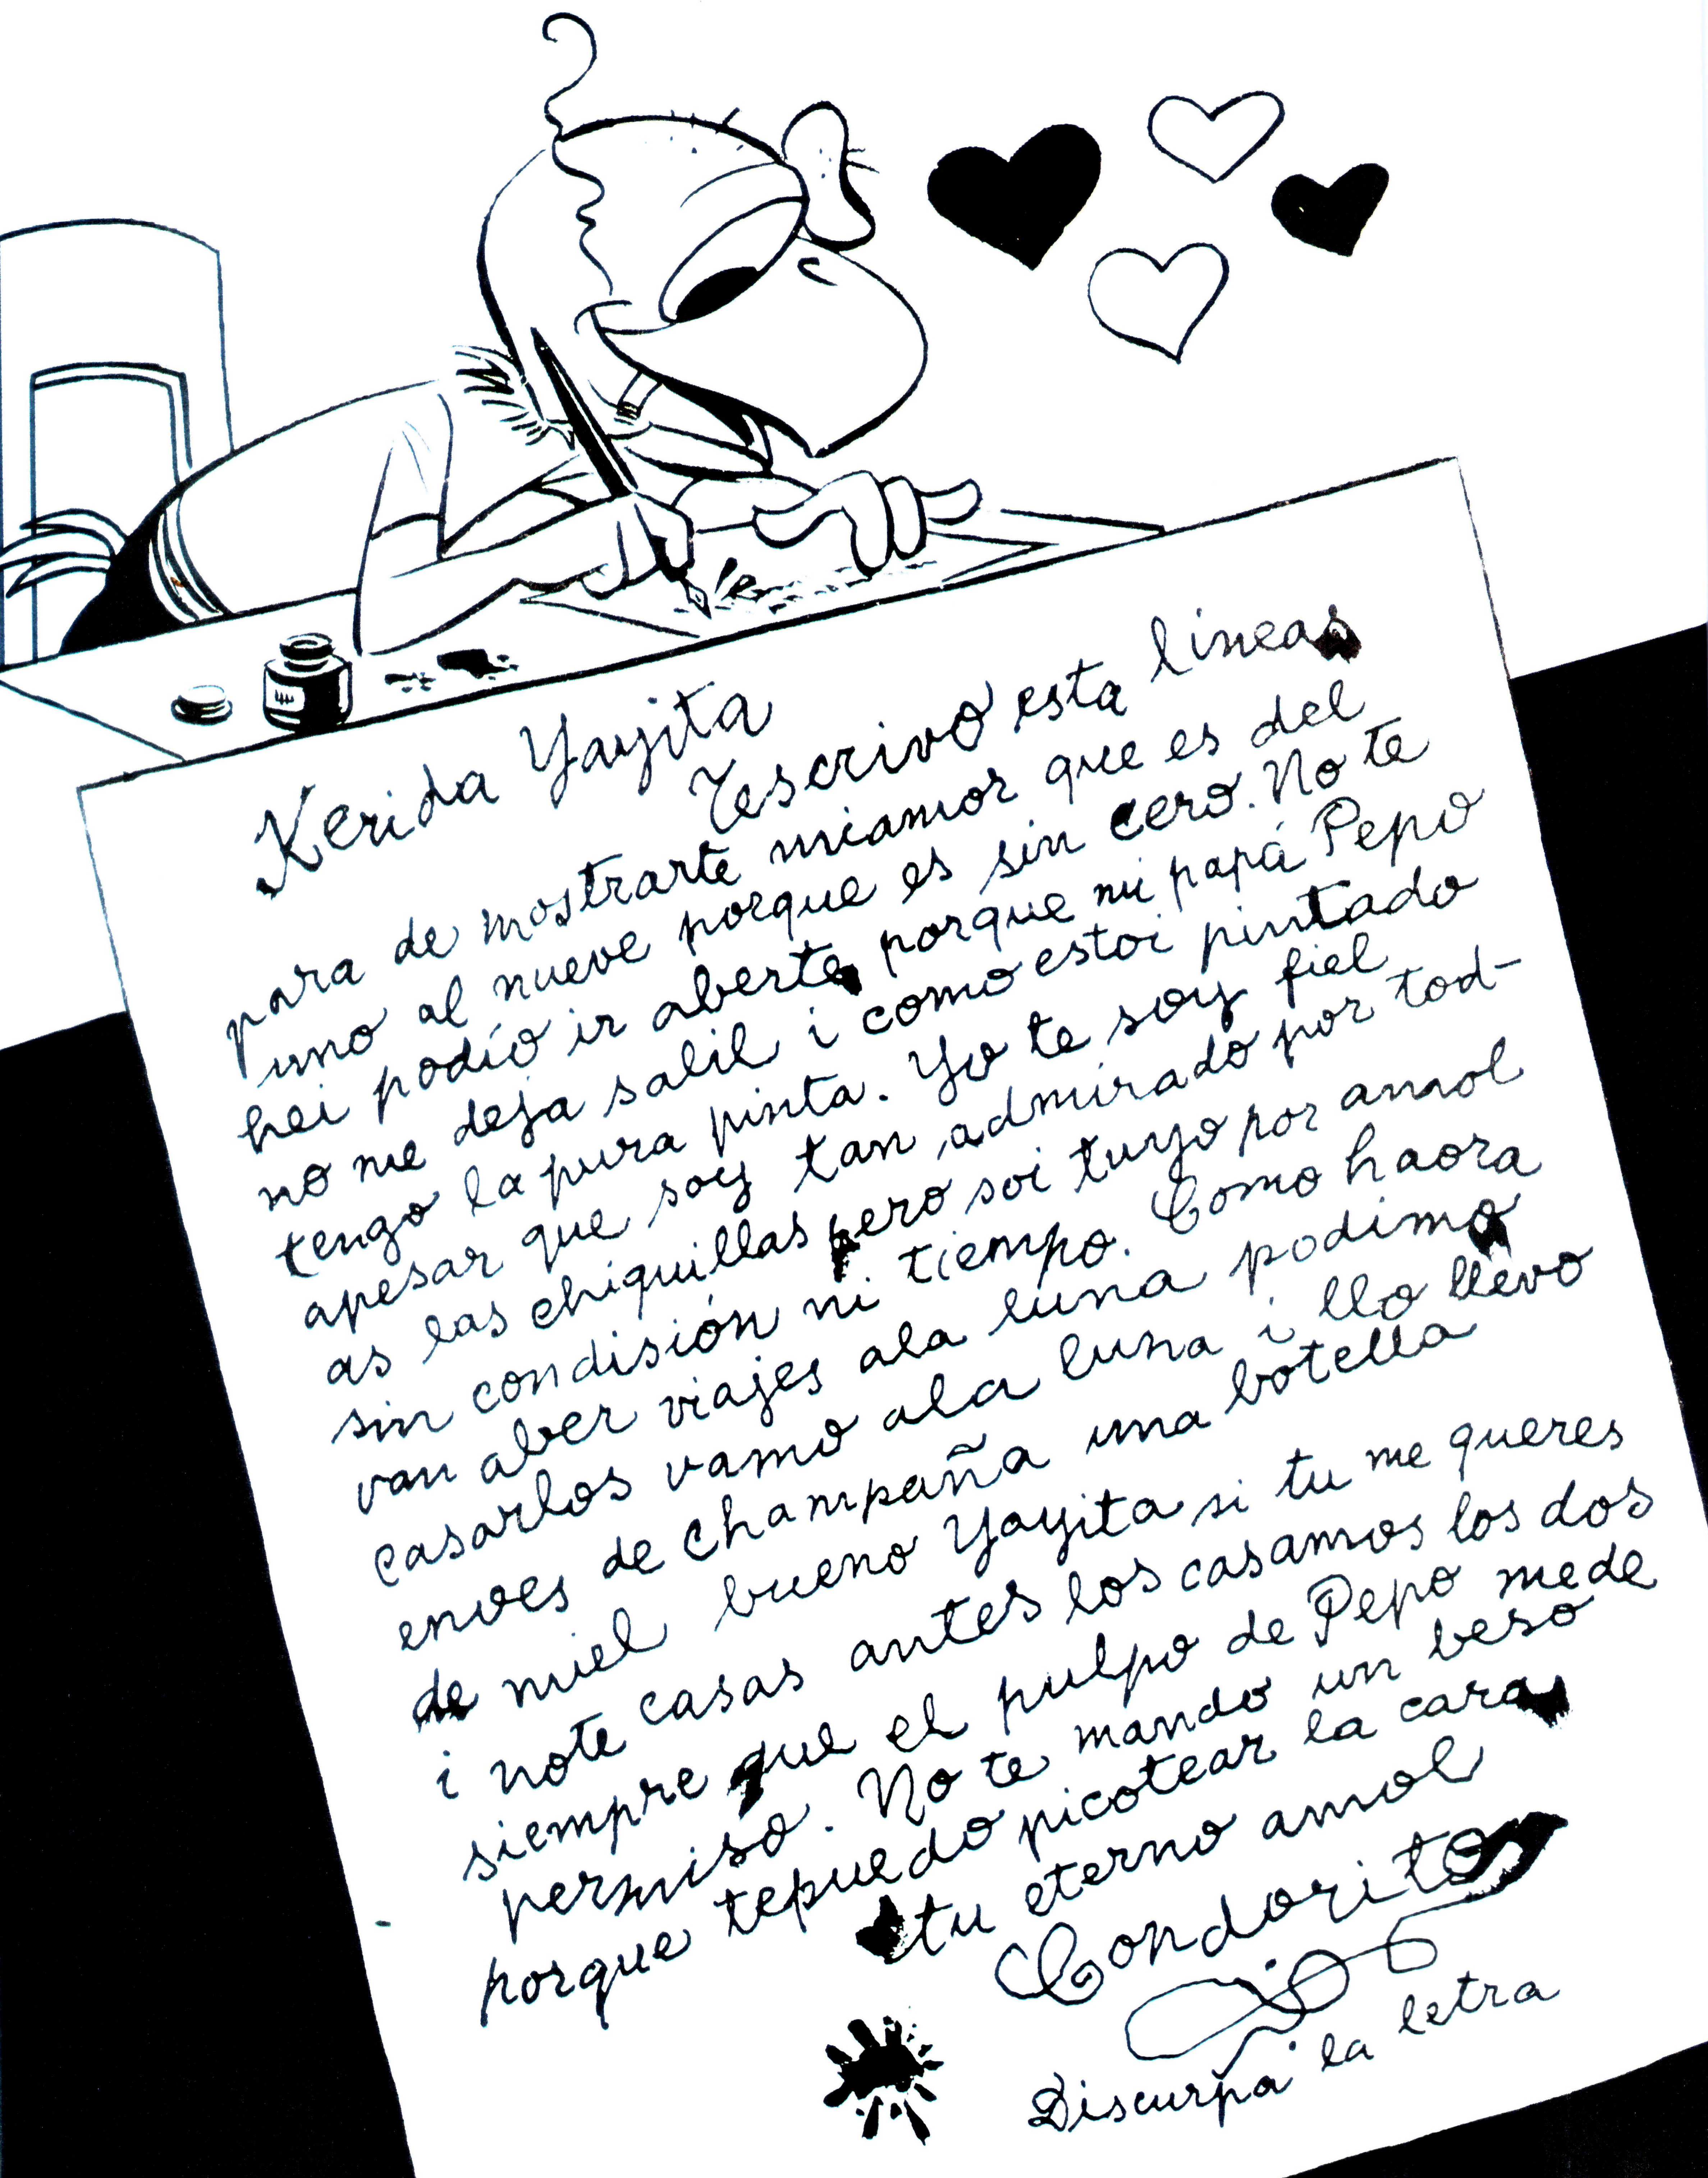 Kerida Yayita
Tescrivo esta lineas
para de mostrarte miamor que es del
uno al nueve porque es sin cero. No te
hei podío ir aberte porque mi papá Pepo
no me deja salil i como estoi pintado
tengo la pura pinta. Yo te soy fiel
apesar que soy tan admirado por tod-
as las chiquillas pero soi tuyo por amol
sin condisión ni tiempo. Como haora
van aber viajes ala luna podimo
casarlos vamo ala luna i llo llevo
enves de champaña una botella
de miel bueno Yayita si tu me queres
i note casas antes los casamos los dos
siempre que el pulpo de Pepo mede
permiso. No te mando un beso
porque tepuedo picotear la cara
tu eterno amol
Condorito
Discurpa la letra